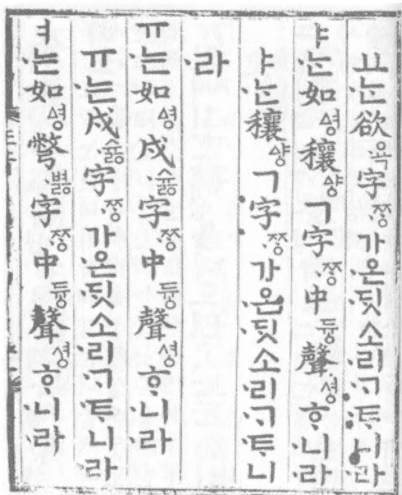 ㅛᄂᆞᆫ欲욕字ᄍᆞᆼ가온ᄃᆡᆺ소리ᄀᆞᄐᆞ니라
ㅑᄂᆞᆫ如ᅀᅧᆼ穰ᅀᅣᇰㄱ字ᄍᆞᆼ中듀ᇰ聲셔ᇰᄒᆞ니라
ㅑᄂᆞᆫ穰ᅀᅣᇰㄱ字ᄍᆞᆼ가온ᄃᆡᆺ소리ᄀᆞᄐᆞ니
라
ㅠ는如ᅀᅧᆼ戌슈ᇙ字ᄍᆞᆼ中듀ᇰ聲셔ᇰᄒᆞ니라
ㅠ는戌슈ᇙ字ᄍᆞᆼ가온ᄃᆡᆺ소리ᄀᆞᄐᆞ니라
ㅕ는如ᅀᅧᆼ彆벼ᇙ字ᄍᆞᆼ中듀ᇰ聲셔ᇰᄒᆞ니라